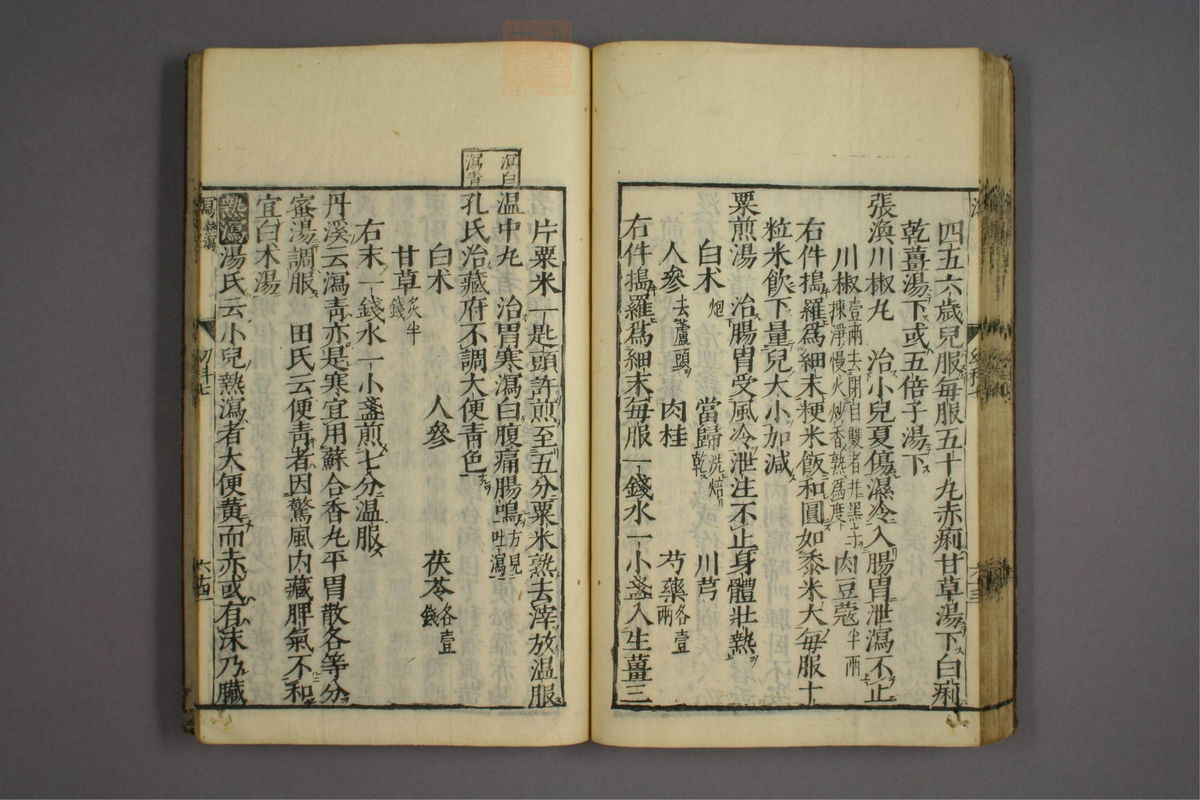 四五六歳兒服每服五十丸赤痢甘草湯下白痢
乾薑湯下或五倍子湯下
張渙川椒丸 治小兒夏傷濕冷入腸胃泄瀉不止
川椒壹兩去閉目雙者并黑子揀淨慢火炒香熟爲度 肉豆蔻半兩
右件搗羅爲細末粳米飯和圓如黍米大每服十
粒米飲下量兒大小加減
粟煎湯 治腸胃受風冷泄注不止身體壯熱
白朮炮 當歸洗焙乾 川芎
人參去蘆頭 肉桂 芍藥各壹兩
右件搗羅爲細末每服一錢水一小盞入生薑三
片粟米一匙頭許煎至五分粟米熟去滓放温服
瀉白
温中丸 治胃寒瀉白腹痛腸鳴方見吐瀉
瀉青
孔氏治藏府不調大便青色
白朮 人參 茯苓各壹錢
甘草炙半錢
右末一錢水一小盞煎七分温服
丹溪云瀉青亦是寒宜用蘇合香丸平胃散各等分
蜜湯調服 田氏云便青者因驚風内藏脾氣不和
宜白朮湯
熱瀉湯氏云小兒熱瀉者大便黄而赤或有沫乃臟
幼科七
六十四